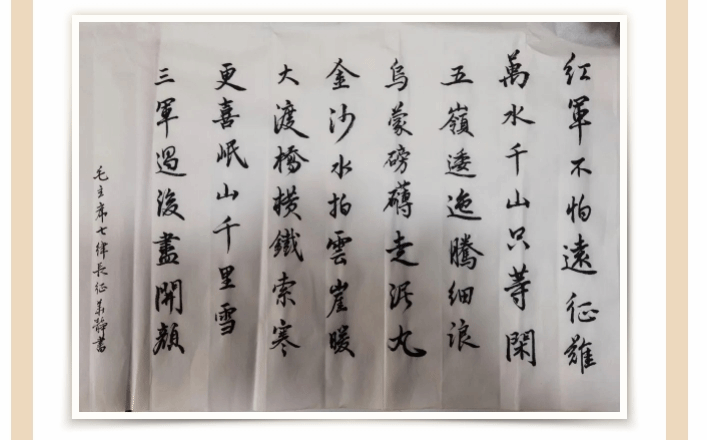 紅軍不怕遠征難
萬水千山只等閑
五嶺逶迤騰細浪
烏蒙磅礴走泥丸
金沙水拍雲崖暖
大渡橋橫鐵索寒
更喜岷山千里雪
三軍過後盡開顏
毛主席七律長征 靜書